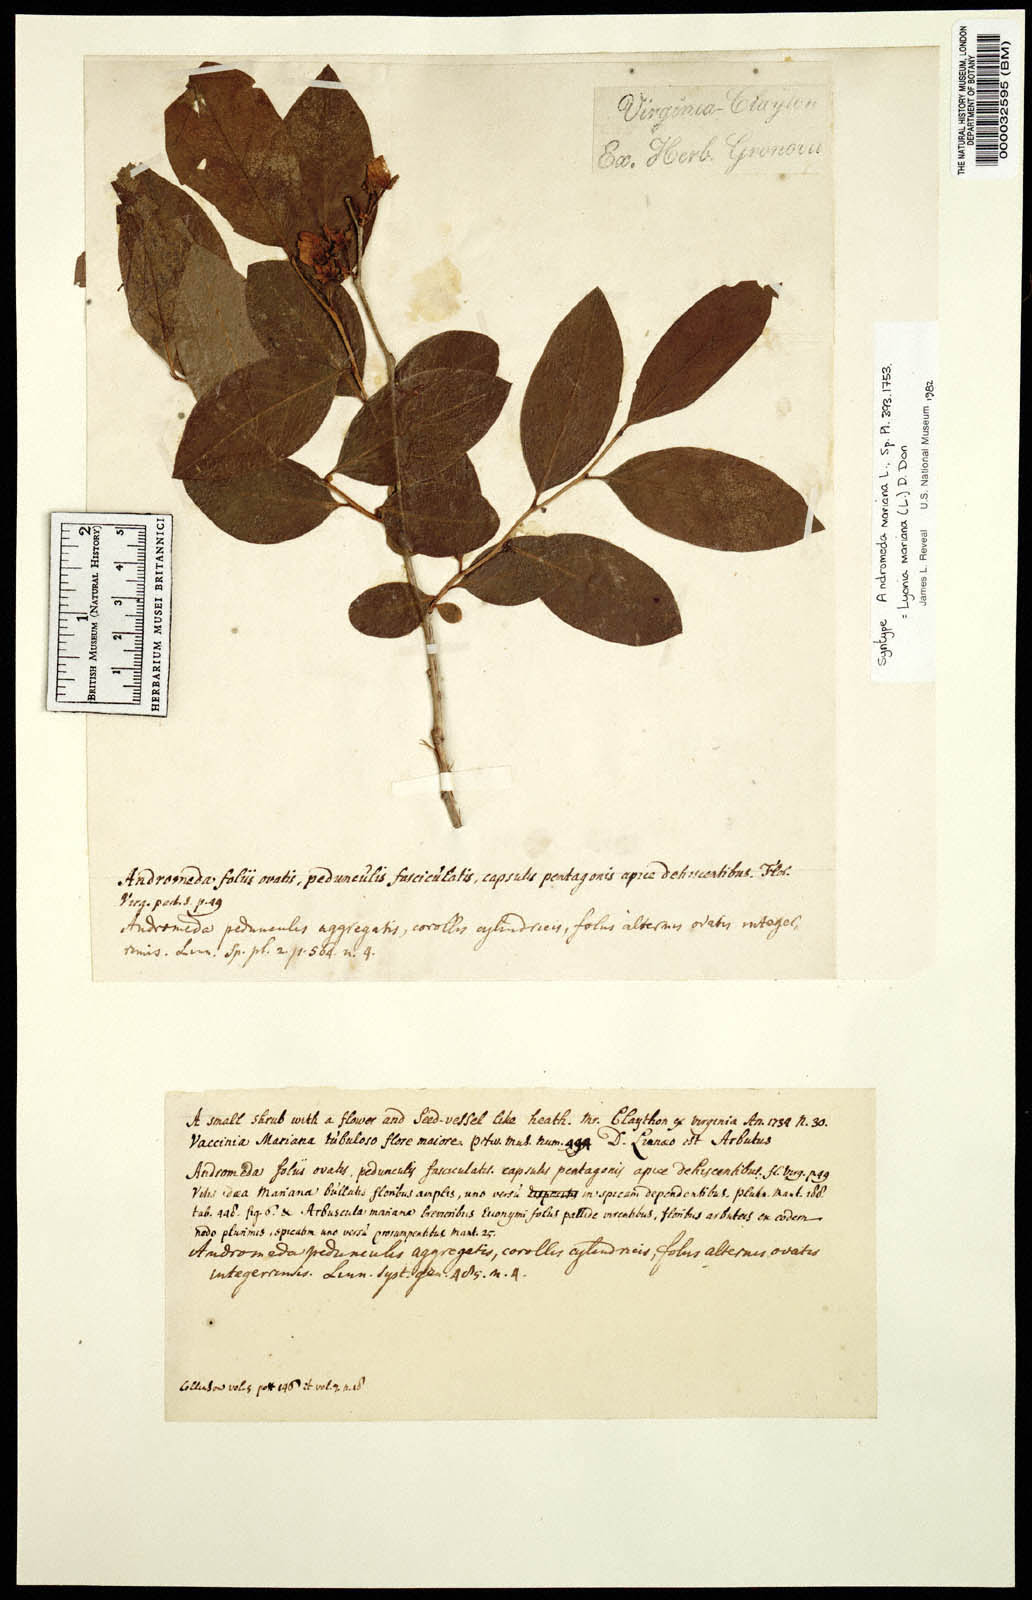 THE NATURAL HISTORY MUSEUM, LONDON
DEPARTMENT OF BOTANY
000032595 (BM)
Virginia-Clayton
Ex. Herb. Gronovii
Syntype Andromeda mariana L., Sp. Pl. 393. 1753.
= Lyonia mariana (L.) D. Don
James L. Reveal U.S. National Museum 1982
1 2
BRITISH MUSEUM (NATURAL HISTORY)
1 2 3 4 5
HERBARIUM MUSEI BRITANNICI
Andromeda foliis ovatis, pedunculis fasciculatis, capsulis pentagonis apice dehiscentibus. Flor.
Virg. part. p. 49
Andromeda pedunculis aggregatis, corollis cylindricis, foliis alternis ovatis integer,
rimis. Linn. Sp. pl. 2. p. 564. n. 4.
A small shrub with a flower and Seed-vessel like heath. Mr. Claython ex virginia An. 1734 N. 30.
Vaccinia Mariana tubuloso flore maiore Petiv. mus. num. 494 D. Linnæo est Arbutus
Andromeda foliis ovatis, pedunculis fasciculatis. capsulis pentagonis apice dehiscentibus. fl. Virg. p. 49
Vitis idæa Mariana bullatis floribus amplis, uno versu in spicam dependentibus. Plukn. Mant. 188
tab. 448. fig. 6. & Arbuscula mariana brevioribus Euonymi foliis pallide virentibus, floribus arbuteis ex eodem
nodo plurimis, spicatim uno versu Mant. 25.
Andromeda pedunculis aggregatis, corollis cylindricis, foliis alternis ovatis
integerrimis. Linn. Syst. 485. n. 4.
Collinson vol. 5 148 et vol. 2 n. 18